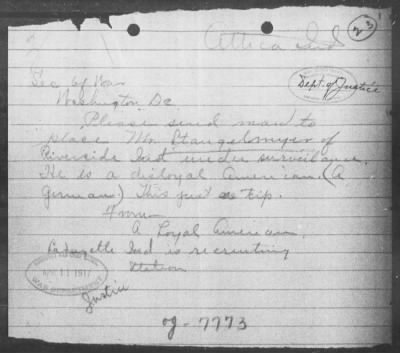 23
Attica Ind
Sec of War
Washington Dc.
Dept. of Justice
Please send man to
place Mr. Stangelmyer of
Riverside Ind under surveilance.
He is a disloyal American. (A
German) This just a tip.
From
A Loyal American.
Lafayette Ind is recruiting
station
WAR DEPARTMENT
1917
Justice
og-7773